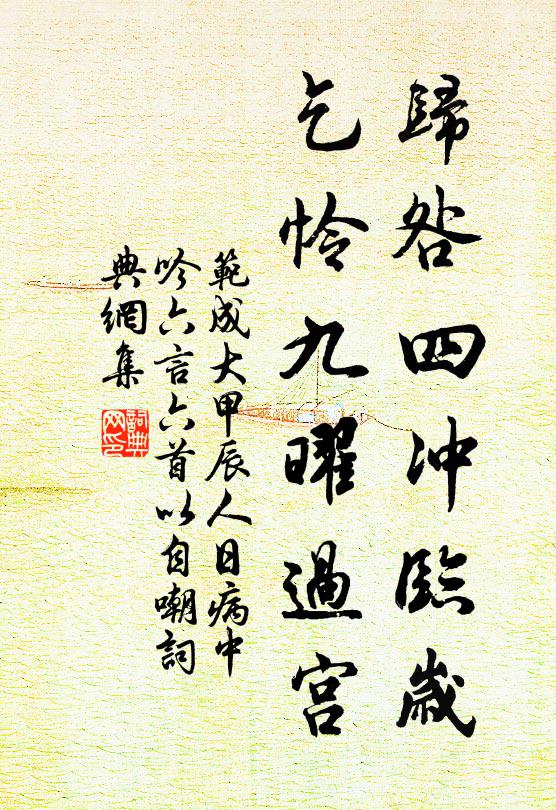 歸咎四沖臨歲
乞怜九曜過宮
範成大甲辰人日病中
吟六言六首以自嘲詞
典網集
詞典
网印